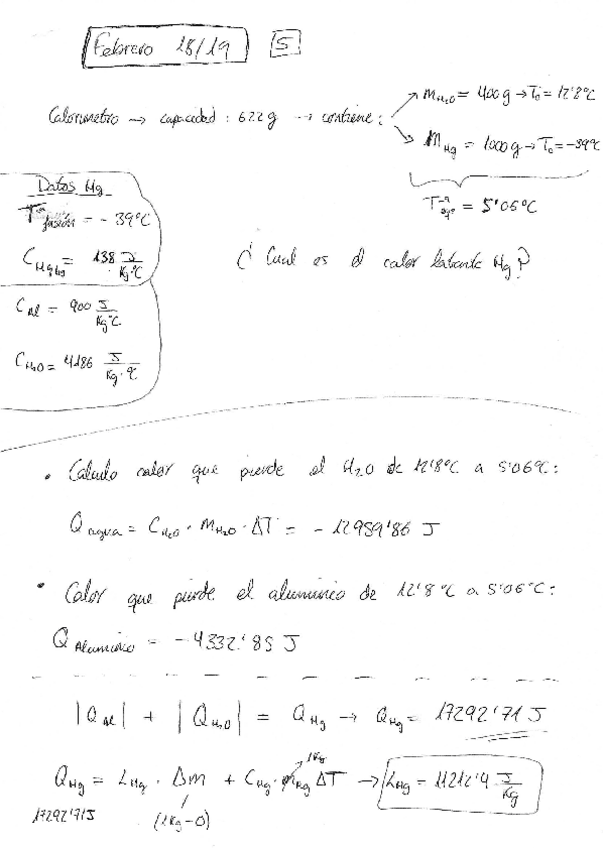 Febrero 18/19 5
Calorimetro → capacidad : 622 g → contiene :
m H2O = 400 g → To = 12'8ºC
m Hg = 1000 g → To = -39ºC
T = 5'06ºC
Datos Hg
Tª fusión = - 39ºC
C Hg liq = 138 J/Kg·ºC
C Al = 900 J/Kg ºC
C H2O = 4186 J/Kg·ºC
¿ Cual es el calor latante Hg ?
• Calculo calor que pierde el H2O de 12'8ºC a 5'06ºC :
Q agua = C H2O · M H2O · ΔT = - 12959'86 J
• Calor que pierde el aluminio de 12'8ºC a 5'06ºC :
Q Aluminio = - 4332'85 J
|Q Al| + |Q H2O| = Q Hg → Q Hg = 17292'71 J
1Kg
Q Hg = L Hg · Δm + C Hg · m Hg ΔT → L Hg = 11212'4 J/Kg
17292'71J (1Kg-0)